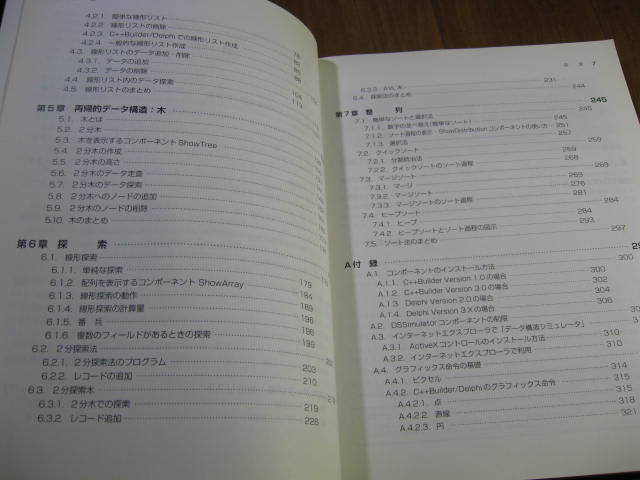 4.2.1. 簡単な線形リスト
4.2.2. 線形リストの削除
4.2.3. C++Builder/Delphiでの線形リスト作成
4.2.4. 一般的な線形リスト作成 78
4.3. 線形リストのデータ追加・削除
4.3.1. データの追加
4.3.2. データの削除
4.4. 線形リスト内のデータ探索
4.5. 線形リストのまとめ
104
119
第5章 再帰的データ構造：木
5.1. 木とは
5.2. 2分木
5.3. 木を表示するコンポーネントShowTree
5.4. 2分木の作成
5.5. 2分木の高さ
5.6. 2分木のデータ走査
5.7. 2分木のデータ探索
5.8. 2分木へのノードの追加
5.9. 2分木のノードの削除
5.10. 木のまとめ
第6章 探 索
6.1. 線形探索
6.1.1. 単純な探索
6.1.2. 配列を表示するコンポーネント ShowArray 179
6.1.3. 線形探索の動作 184
6.1.4. 線形探索の計算量 189
6.1.5. 番 兵 196
6.1.6. 複数のフィールドがあるときの探索 196
6.2. 2分探索法 199
6.2.1. 2分探索法のプログラム 203
6.2.2. レコードの追加 210
6.3. 2分探索木
6.3.1. 2分木での探索 219
6.3.2. レコード追加 226
目 次 7
6.3.3. AVL木 231
6.4. 探索法のまとめ 244
第7章 整 列 245
7.1. 簡単なソートと選択法
7.1.1. 数字の並べ替え(簡単なソート)
7.1.2. ソート過程の表示・ShowDistribution コンポーネントの使い方 251
7.1.3. 選択法 257
7.2. クイックソート 259
7.2.1. 分割統治法 259
7.2.2. クイックソートのソート過程 260
7.3. マージソート 269
7.3.1. マージ 269
7.3.2. マージソート 276
7.3.3. マージソートのソート過程 281
7.4. ヒープソート 284
7.4.1. ヒープ 284
7.4.2. ヒープソートとソート過程の図示 293
7.5. ソート法のまとめ 297
A付 録
A.1. コンポーネントのインストール方法
A.1.1. C++Builder Version 1.0の場合 300
A.1.2. C++Builder Version 3.0の場合 300
A.1.3. Delphi Version 2.0の場合 302
A.1.4. Delphi Version 3.Xの場合 304
A.2. DSSimulatorコンポーネントの制限 306
A.3. インターネットエクスプローラで「データ構造シミュレータ」
A.3.1. ActiveXコントロールのインストール方法 310
A.3.2. インターネットエクスプローラで利用 310
A.4. グラフィックス命令の基礎 314
A.4.1. ピクセル 315
A.4.2. C++Builder/Delphiのグラフィックス命令 315
A.4.2.1. 点 318
A.4.2.2. 直線 321
A.4.2.3. 円